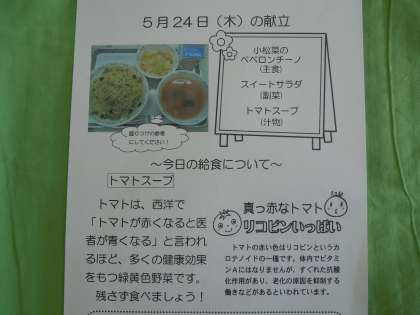 5月24日(木)の献立
小松菜の
ペペロンチーノ
(主食)
スイートサラダ
(副菜)
トマトスープ
(汁物)
盛りつけの参考
にしてください!
～今日の給食について～
トマトスープ
トマトは、西洋で
「トマトが赤くなると医
者が青くなる」と言われ
るほど、多くの健康効果
をもつ緑黄色野菜です。
残さず食べましょう!
真っ赤なトマト
リコピンいっぱい
トマトの赤い色はリコピンというカ
ロテノイドの一種です。体内でビタミ
ンAにはなりませんが、すぐれた抗酸
化作用があり、老化の原因を抑制する
働きなどがあるといわれています。